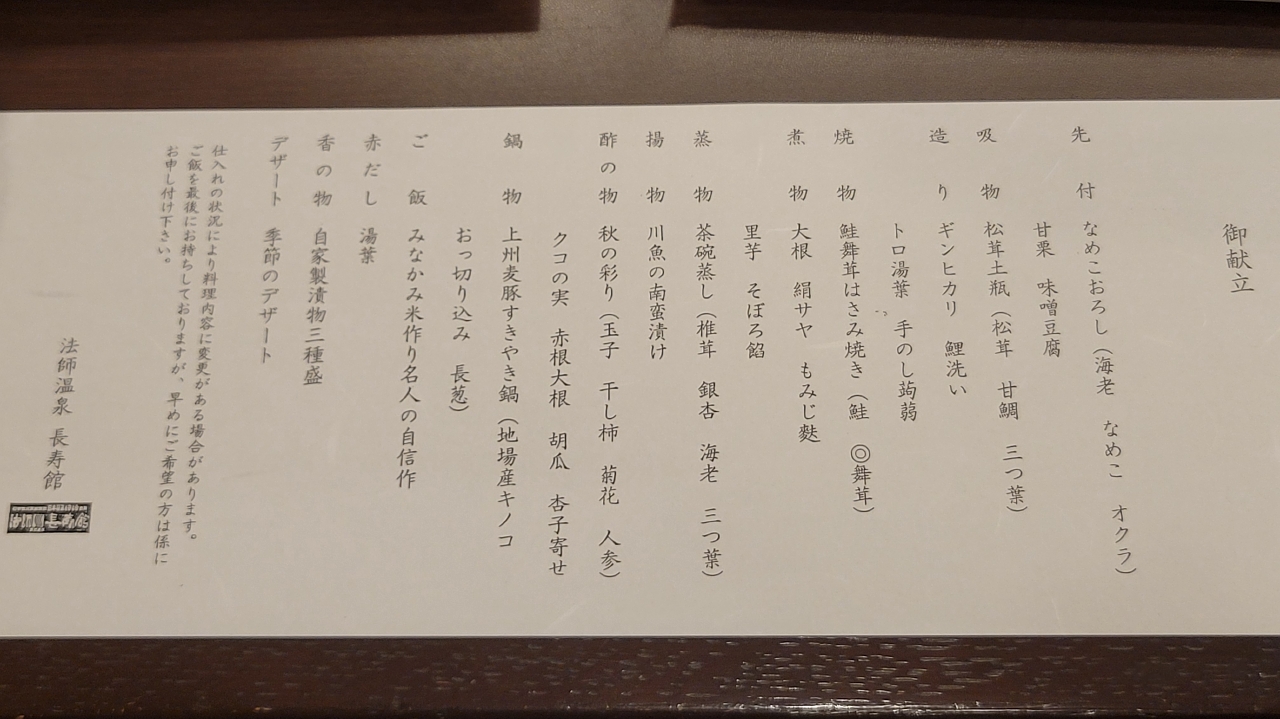 御献立
先付 なめこおろし（海老 なめこ オクラ）
甘栗 味噌豆腐
吸物 松茸土瓶（松茸 甘鯛 三つ葉）
造り ギンヒカリ 鯉洗い
トロ湯葉 手のし蒟蒻
焼物 鮭舞茸はさみ焼き（鮭 ◎舞茸）
煮物 大根 絹サヤ もみじ麩
里芋 そぼろ餡
蒸物 茶碗蒸し（椎茸 銀杏 海老 三つ葉）
揚物 川魚の南蛮漬け
酢の物 秋の彩り（玉子 干し柿 菊花 人参）
クコの実 赤根大根 胡瓜 杏子寄せ
鍋物 上州麦豚すきやき鍋（地場産キノコ
おっ切り込み 長葱）
ご飯 みなかみ米作り名人の自信作
赤だし 湯葉
香の物 自家製漬物三種盛
デザート 季節のデザート
仕入れの状況により料理内容に変更がある場合があります。
ご飯を最後にお持ちしておりますが、早めにご希望の方は係に
お申し付け下さい。
法師温泉 長寿館